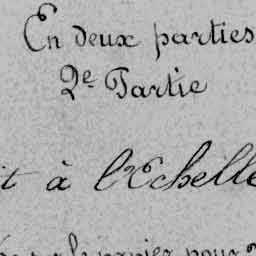 En deux parties
2e Partie
à l'Echelle
le papier pour